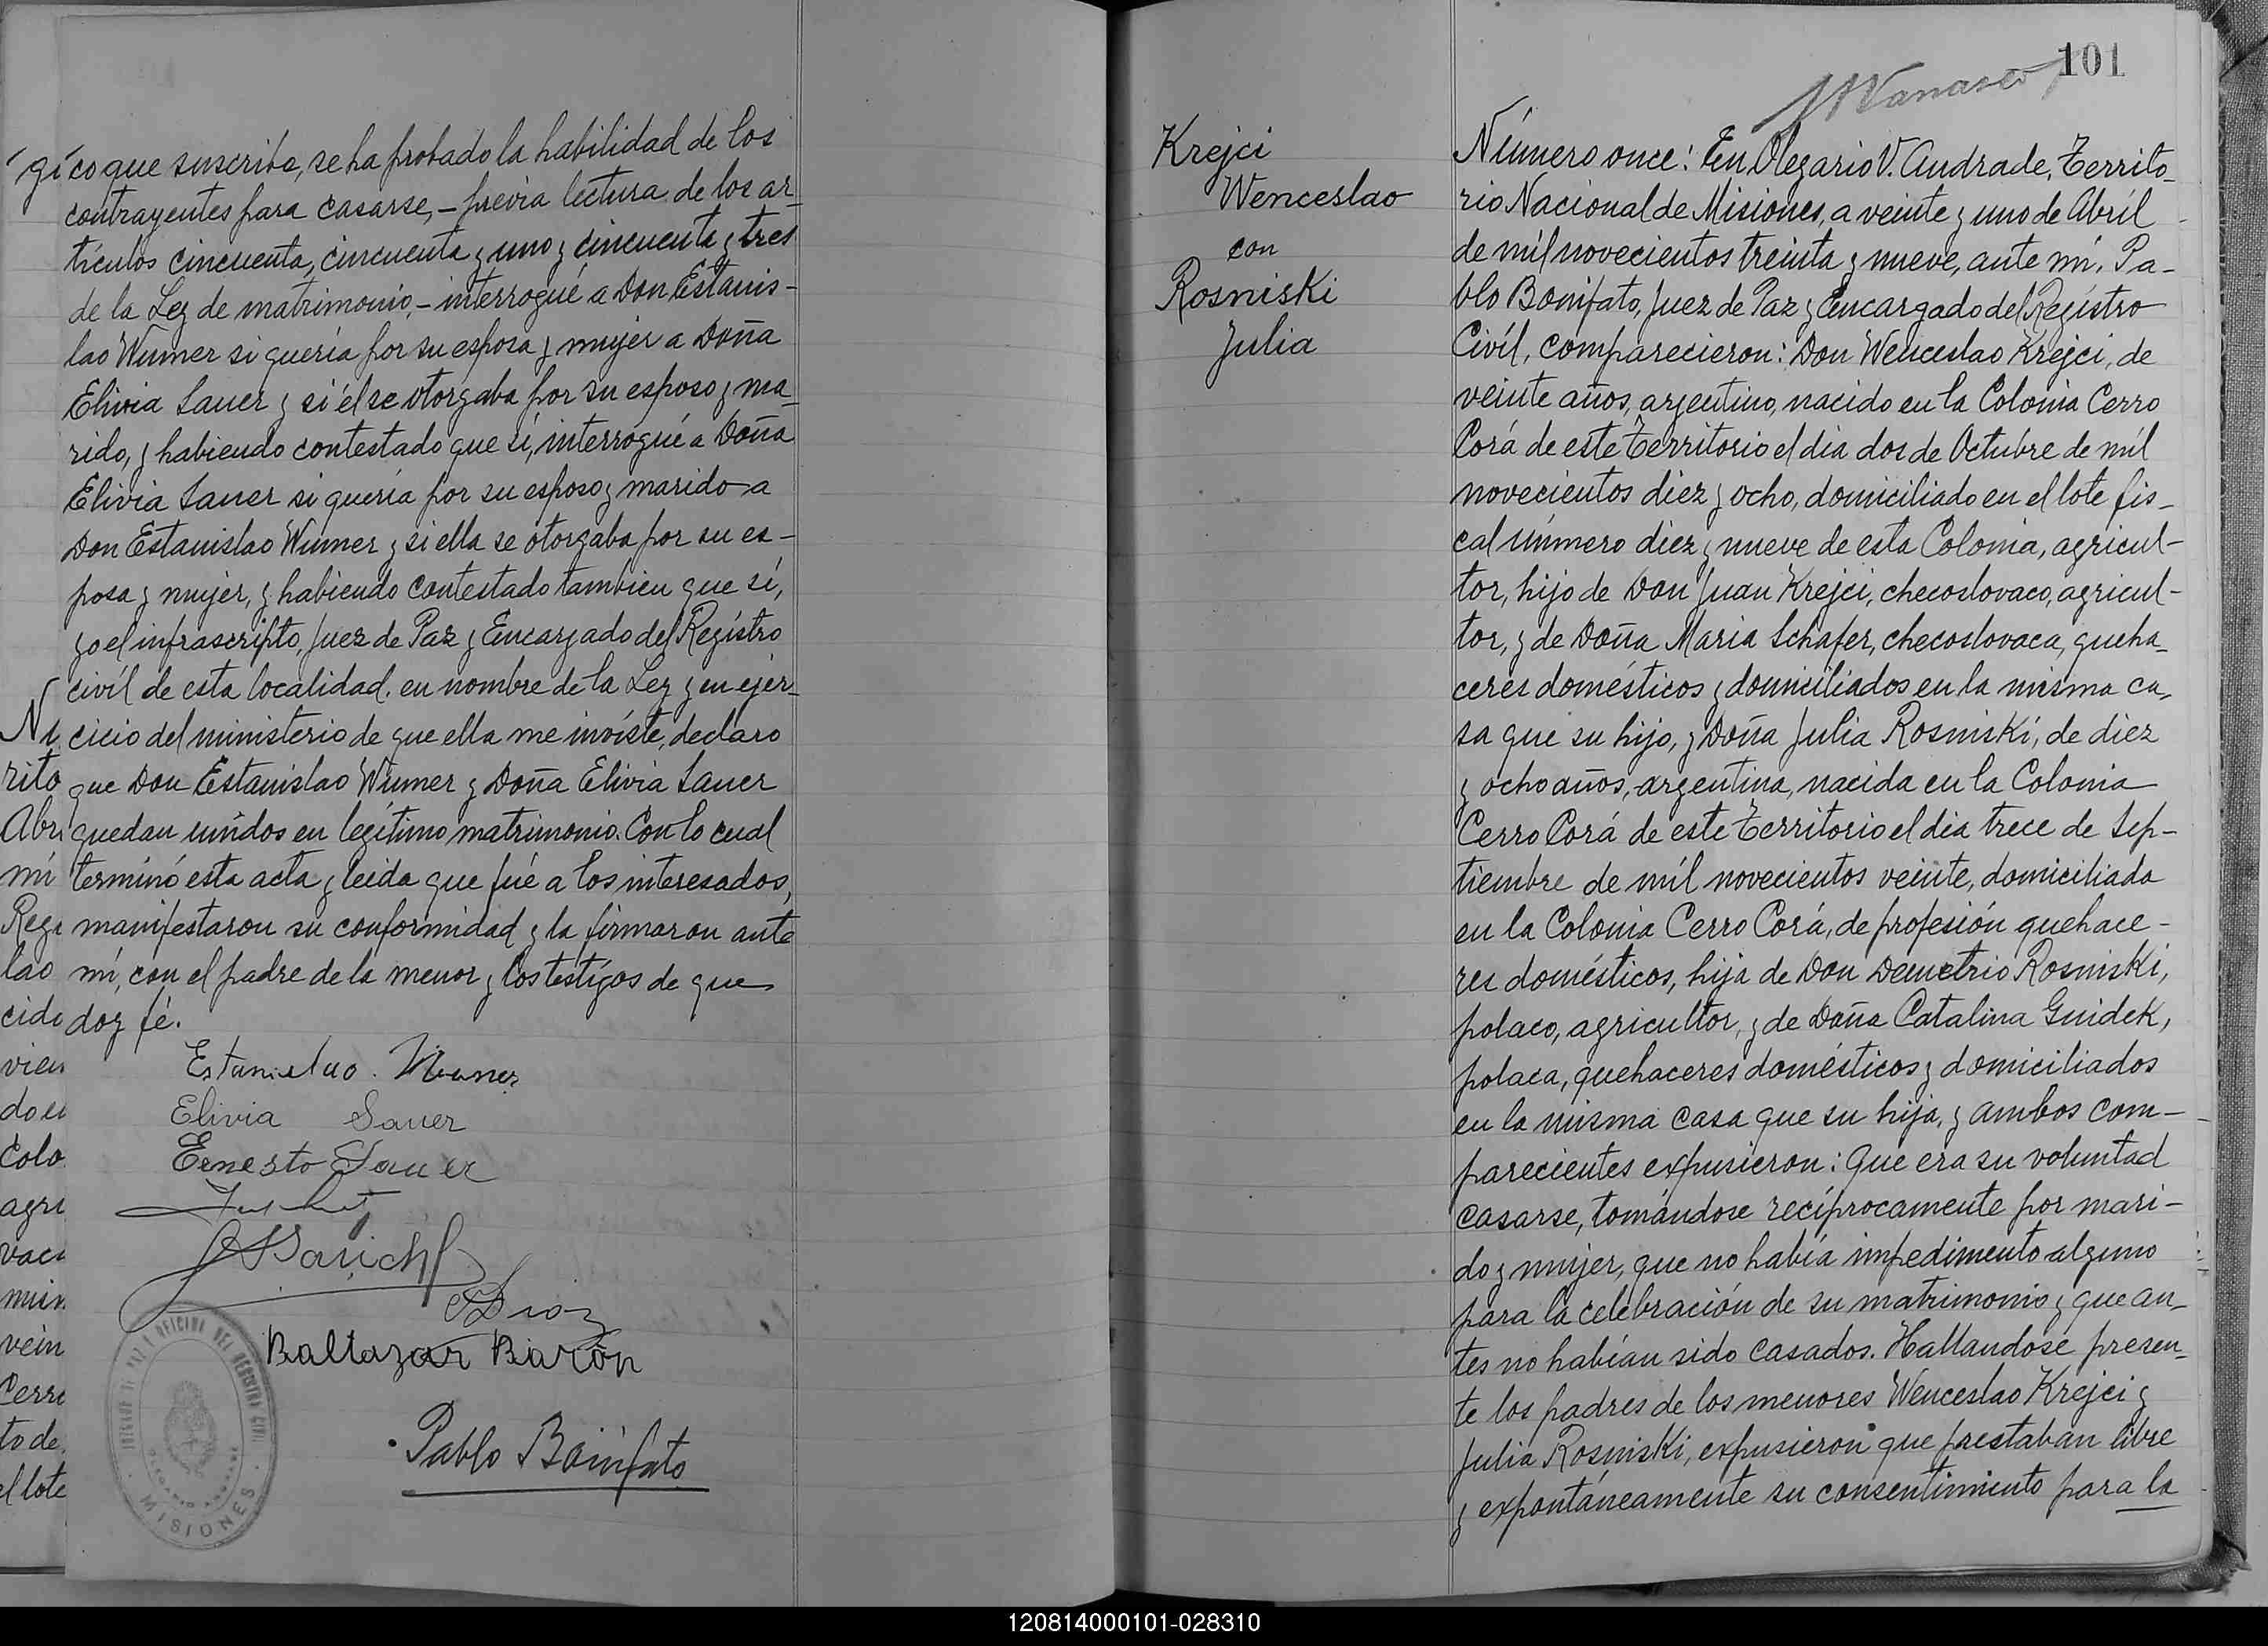 gi
co que suscribe, se ha probado la habilidad de los
contrayentes para casarse,- previa lectura de los ar-
tículos cincuenta, cincuenta y uno y cincuenta y tres
de la Ley de matrimonio,- interrogué a Don Estanis-
lao Wimer si quería por su esposa y mujer a Doña
Elivia Sauer y si él se otorgaba por su esposo y ma-
rido, y habiendo contestado que sí, interrogué a Doña
Elivia Sauer si quería por su esposo y marido a
Don Estanislao Wimer y si ella se otorgaba por su es-
posa y mujer, y habiendo contestado tambien que sí,
yo el infrascripto, Juez de Paz y Encargado del Registro
civíl de esta localidad, en nombre de la Ley y en ejer-
cicio del ministerio de que ella me inviste, declaro
que Don Estanislao Wimer y Doña Elivia Sauer
quedan unidos en legítimo matrimonio. Con lo cual
terminó esta acta y leida que fué a los interesados,
manifestaron su conformidad y la firmaron ante
mí, con el padre de la menor y los testigos de que
doy fé.
rito
Abri
mí
Regi
lao
cido
vien
do en
Colo
agri
vaca
mism
vein
Cerro
to de
el lote
Estanislao Wimer
Elivia Sauer
Ernesto Sauer
Diaz
Baltazar Barón
Pablo Bonifato
JUZGADO DE PAZ Y OFICINA DEL REGISTRO CIVIL
OLEGARIO ANDRADE
MISIONES
101
Krejci
Wenceslao
con
Rosniski
Julia
Número once: En Olegario V. Andrade, Territo-
rio Nacional de Misiones, a veinte y uno de Abríl
de míl novecientos treinta y nueve, ante mí, Pa-
blo Bonifato, Juez de Paz y Encargado del Registro
Civíl, comparecieron: Don Wenceslao Krejci, de
veinte años, argentino, nacido en la Colonia Cerro
Corá de este Territorio el día dos de Octubre de míl
novecientos diez y ocho, domiciliado en el lote fis-
cal número diez y nueve de esta Colonia, agricul-
tor, hijo de Don Juan Krejci, checoslovaco, agricul-
tor, y de Doña Maria Schafer, checoslovaca, queha-
ceres domésticos y domiciliados en la misma ca-
sa que su hijo, y Doña Julia Rosniski, de diez
y ocho años, argentina, nacida en la Colonia
Cerro Corá de este Territorio el día trece de Sep-
tiembre de míl novecientos veinte, domiciliada
en la Colonia Cerro Corá, de profesión quehace-
res domésticos, hija de Don Demetrio Rosniski,
polaco, agricultor, y de Doña Catalina Guidek,
polaca, quehaceres domésticos y domiciliados
en la misma casa que su hija, y ambos com-
parecientes expusieron: Que era su voluntad
casarse, tomándose recíprocamente por mari-
do y mujer, que no había impedimento alguno
para la celebración de su matrimonio y que an-
tes no habían sido casados. Hallandose presen-
te los padres de los menores Wenceslao Krejci y
Julia Rosniski, expusieron que prestaban libre
y expontáneamente su consentimiento para la
120814000101-028310